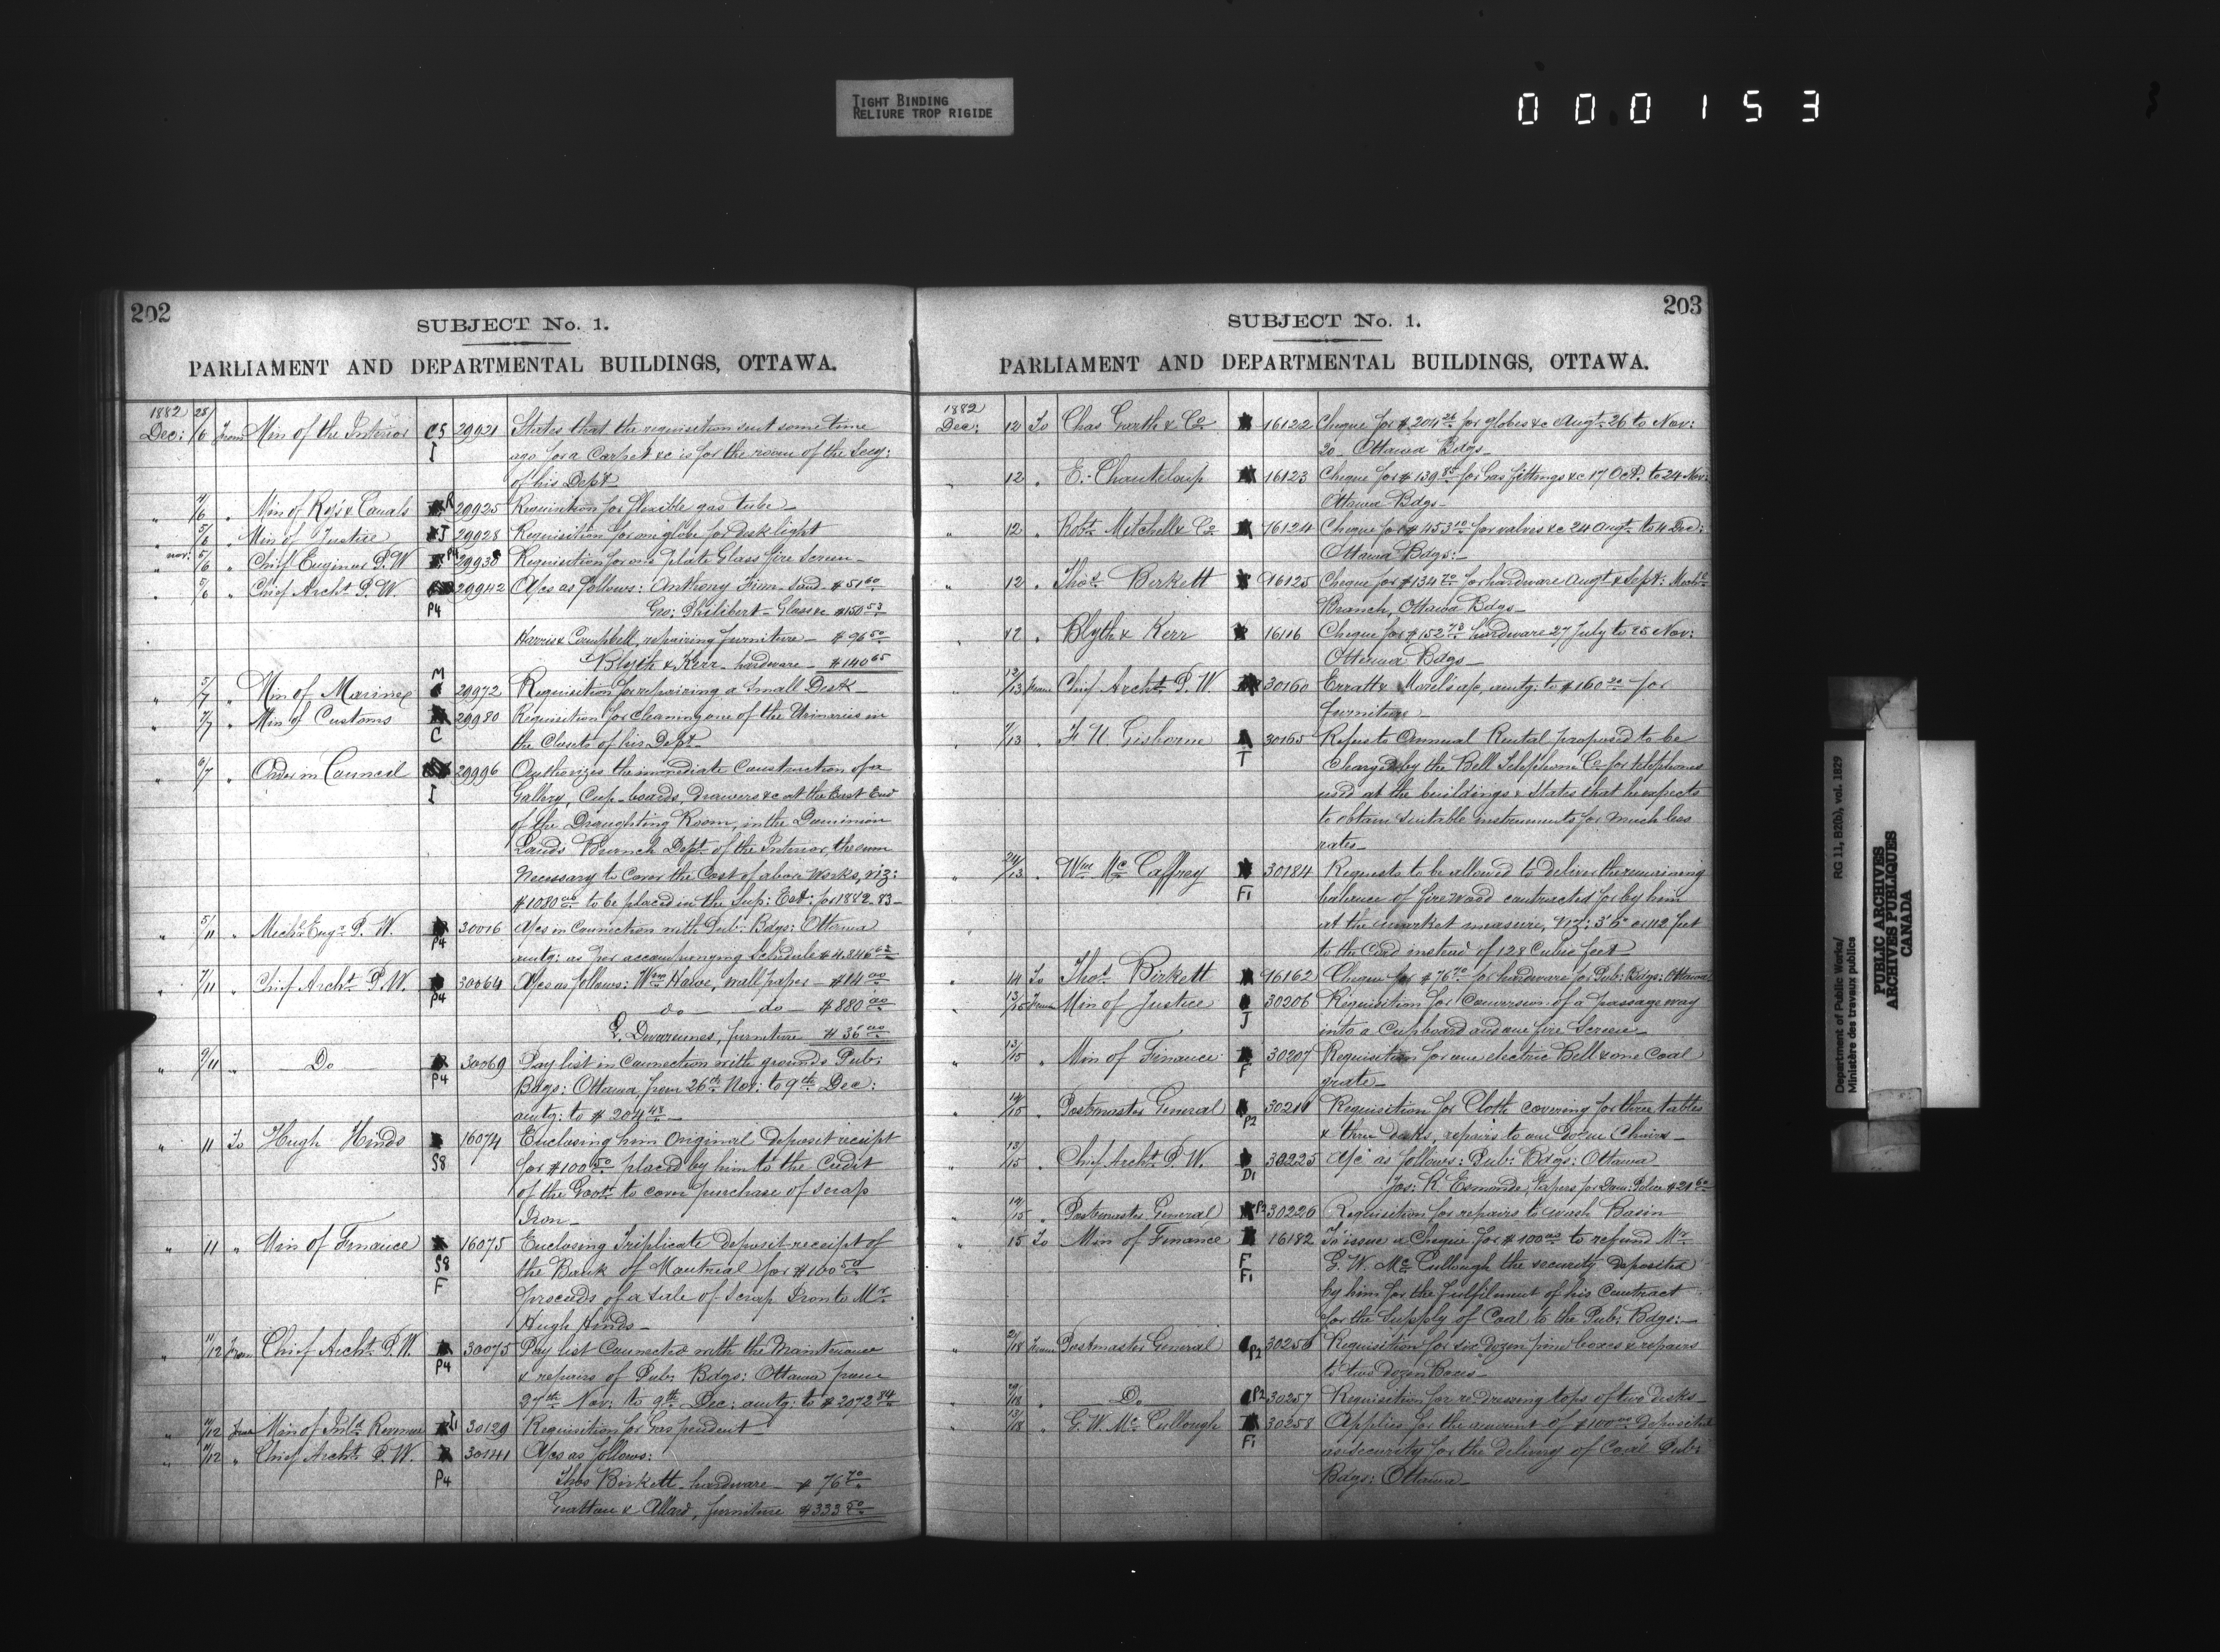 TIGHT BINDING
RELIURE TROP RIGIDE
000153
202
SUBJECT No. 1.
PARLIAMENT AND DEPARTMENTAL BUILDINGS, OTTAWA.
1882 28/
Dec: /6 From Min of the Interior CS 29921 States that the requisition sent some time
I ago for a Carpet &c is for the room of the Secy:
of his Dept
" 4/6 " Min of Rys & Canals R 29925 Requisition for flexible gas tube
" 5/6 " Min of Justice J 29928 Requisition for one globe for desk light
" nov: 5/6 " Chief Engineer P. W P4 29938 Requisition for one plate Glass fire Screen
" 5/6 " Chief Archt P. W. 29942 A/cs as follows: Anthony Finn - sand $51 60
P4 Geo: Philibert - Glass &c $150 53
Harris & Campbell, repairing furniture - $96 50
Blyth & Kerr - hardware - $140 65
M
" 5/7 " Min of Marine 29972 Requisition for repairing a Small Desk
" 7/7 " Min of Customs 29980 Requisition for cleaning one of the Urinaries in
C the Closets of his Dept
" 6/7 " Order in Council 29996 Authorizes the immediate Construction of a
I Gallery, Cup-boards, Drawers &c at the East End
of the Draughting Room, in the Dominion
Lands Branch Dept of the Interior, the sum
necessary to Cover the Cost of above Works, viz:
$1080 00 to be placed in the Sup: Est: for 1882-83
" 5/11 " Mechl Engr P. W. 30016 A/cs in connection with Pub: Bdgs: Ottawa
P4 amtg: as per accompanying Schedule $4,846 62
" 7/11 " Chief Archt P. W. 30064 A/cs as follows: Wm Howe, wall paper - $14 00
P4 do - do - $880 00
furniture $36 00
" 9/11 " Do 30069 Pay list in Connection with grounds Pub:
P4 Bdgs: Ottawa from 26th Nov: to 9th Dec:
amtg: to $204 48
" 11 To Hugh Hinds 16074 Enclosing him Original deposit receipt
S8 for $100 50 placed by him to the Credit
of the Govt to cover purchase of scrap
Iron
" 11 " Min of Finance 16075 Enclosing Triplicate deposit receipt of
S8 the Bank of Montreal for $100 50
F proceeds of a sale of Scrap Iron to Mr
Hugh Hinds
" 11/12 From Chief Archt P. W. 30075 Pay list Connected with the Maintenance
P4 & repairs of Pub: Bdgs: Ottawa from
27th Nov: to 9th Dec: amtg: to $2072 84
" 11/12 From Min of Inld Revenue 30129 Requisition for Gas pendent
" 11/12 " Chief Archt P. W. 30141 A/cs as follows:
P4 Thos Birkett - hardware - $76 70
Grattan & Allard, furniture $333 50
203
SUBJECT No. 1.
PARLIAMENT AND DEPARTMENTAL BUILDINGS, OTTAWA.
1882
Dec: 12 To Chas Garth & Co 16122 Cheque for $204 26 for globes &c Augt 26 to Nov:
20 - Ottawa Bdgs
12 " E. Chanteloup 16123 Cheque for $139 85 for Gas fittings &c 17 Oct. to 24 Nov:
Ottawa Bdgs
" 12 " Robt Mitchell & Co 16124 Cheque for $453 10 for valves &c 24 Augt to 4 Dec:
Ottawa Bdgs:
" 12 " Thos Birkett 16125 Cheque for $134 70 for hardware Augt & Sept: Mechl
Branch, Ottawa Bdgs
12 " Blyth & Kerr 16116 Cheque for $152 78 hardware 27 July to 25 Nov:
Ottawa Bdgs
" 12/13 From Chief Archt P. W. 30160 Erratt & Morel's a/c, amtg: to $160 20 for
furniture
" 7/13 " F N. Gisborne 30165 Refers to Annual Rental proposed to be
T Charged by the Bell Telephone Co for telephones
used at the buildings & States that he expects
to obtain suitable instruments for much less
rates
" 24/13 " Wm McCaffrey 30184 Requests to be allowed to deliver the remaining
F1 balance of firewood contracted for by him
at the market measure, viz: 3'6" or 112 feet
to the Cord instead of 128 Cubic feet
" 14 To Thos Birkett 16162 Cheque for $76 70 for hardware for Pub: Bdgs: Ottawa
" 13/15 From Min of Justice 30206 Requisition for Conversion of a passage way
J into a Cupboard and one fire Screen
" 13/15 " Min of Finance 30207 Requisition for one electric Bell & one Coal
F grate
" 14/15 " Postmaster General 30211 Requisition for Cloth covering for three tables
P2 & three desks, repairs to one dozen Chairs
" 13/15 " Chief Archt P. W. 30225 A/c as follows: Pub: Bdgs: Ottawa
D1 Jos: R. Esmonde, for Dom: Police $21 60
" 14/15 " Postmaster General P2 30226 Requisition for repairs to wash Basin
" 15 To Min of Finance 16182 To issue a Cheque for $100 00 to refund Mr
F G. W. McCullough the security deposited
F1 by him for the fulfilment of his Contract
for the Supply of Coal to the Pub: Bdgs:
" /18 From Postmaster General P2 30256 Requisition for six dozen boxes & repairs
to two dozen Boxes
" /18 " Do P2 30257 Requisition for re-dressing tops of two desks
" 13/18 " G. W. McCullough 30258 Applies for the amount of $100 00 deposited
F1 as security for the delivery of Coal Pub:
Bdgs: Ottawa
Department of Public Works/
Ministère des travaux publics
RG 11, B2(b), vol. 1829
PUBLIC ARCHIVES
ARCHIVES PUBLIQUES
CANADA